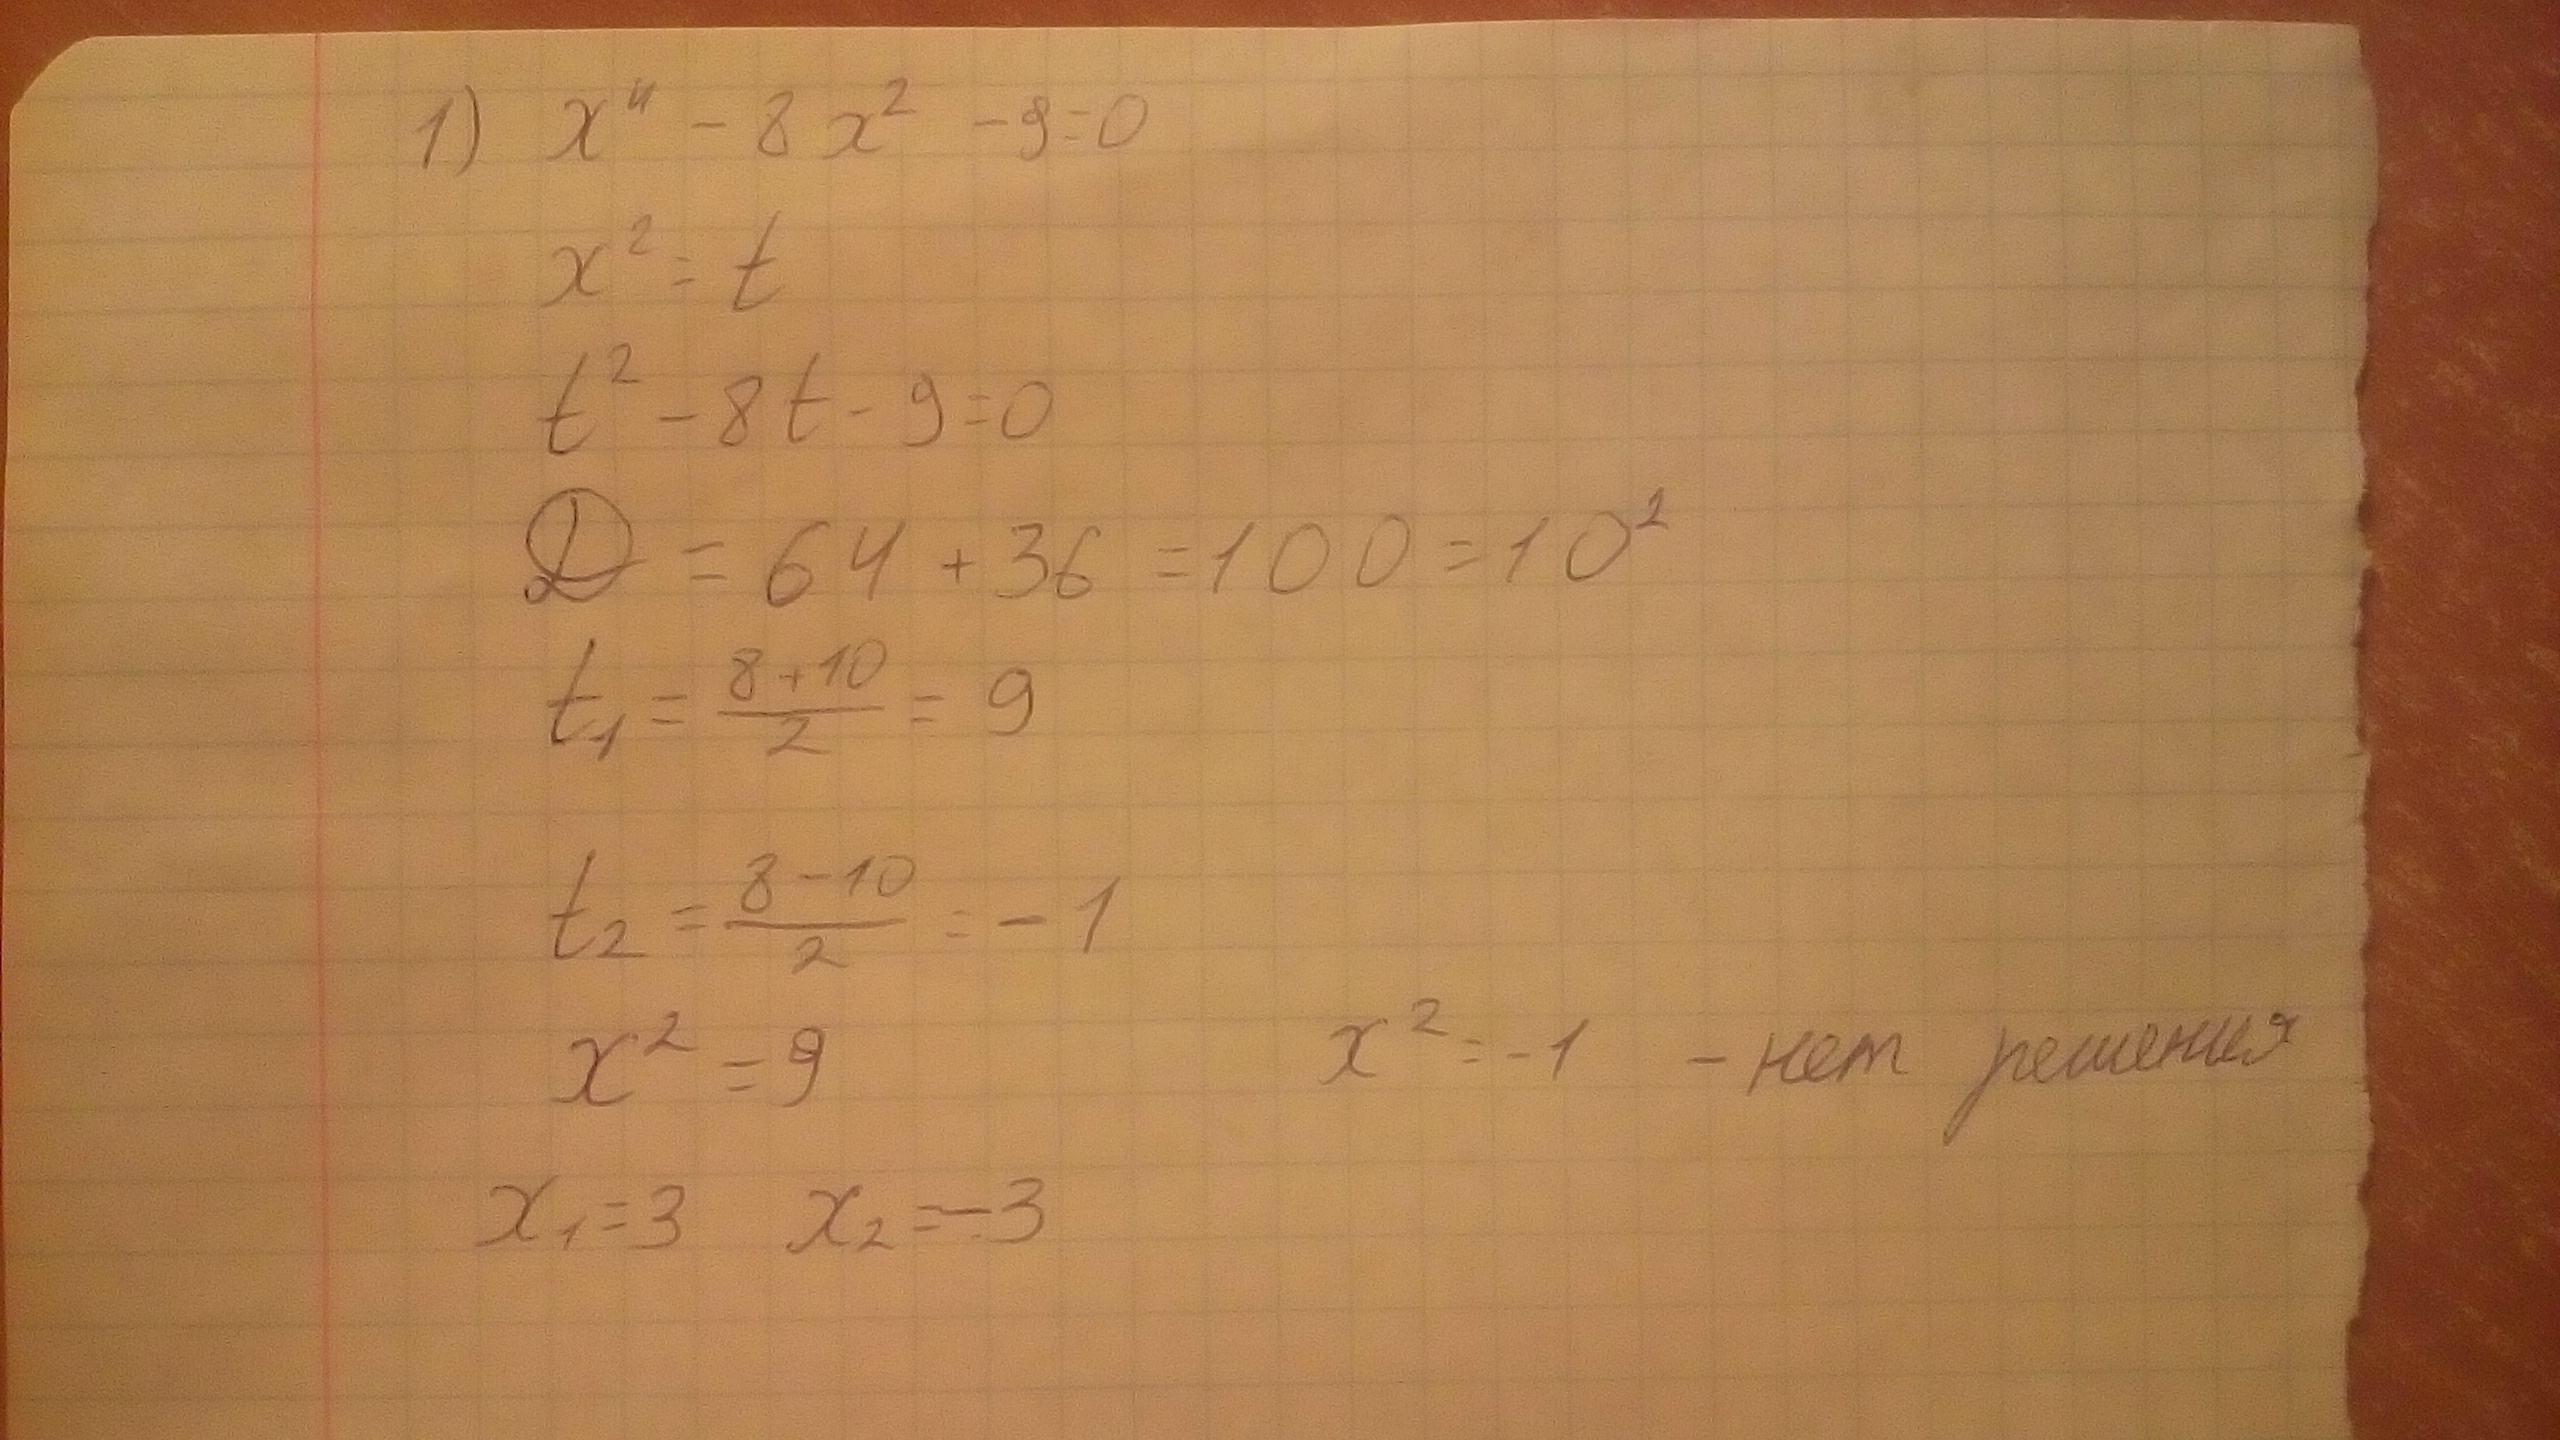 1) x⁴ - 8x² - 9=0
x² = t
t² - 8t - 9=0
D = 64 + 36 = 100 = 10²
t₁ = (8+10)/2 = 9
t₂ = (8-10)/2 = -1
x² = 9 x² = -1 - нет решения
x₁=3 x₂=-3